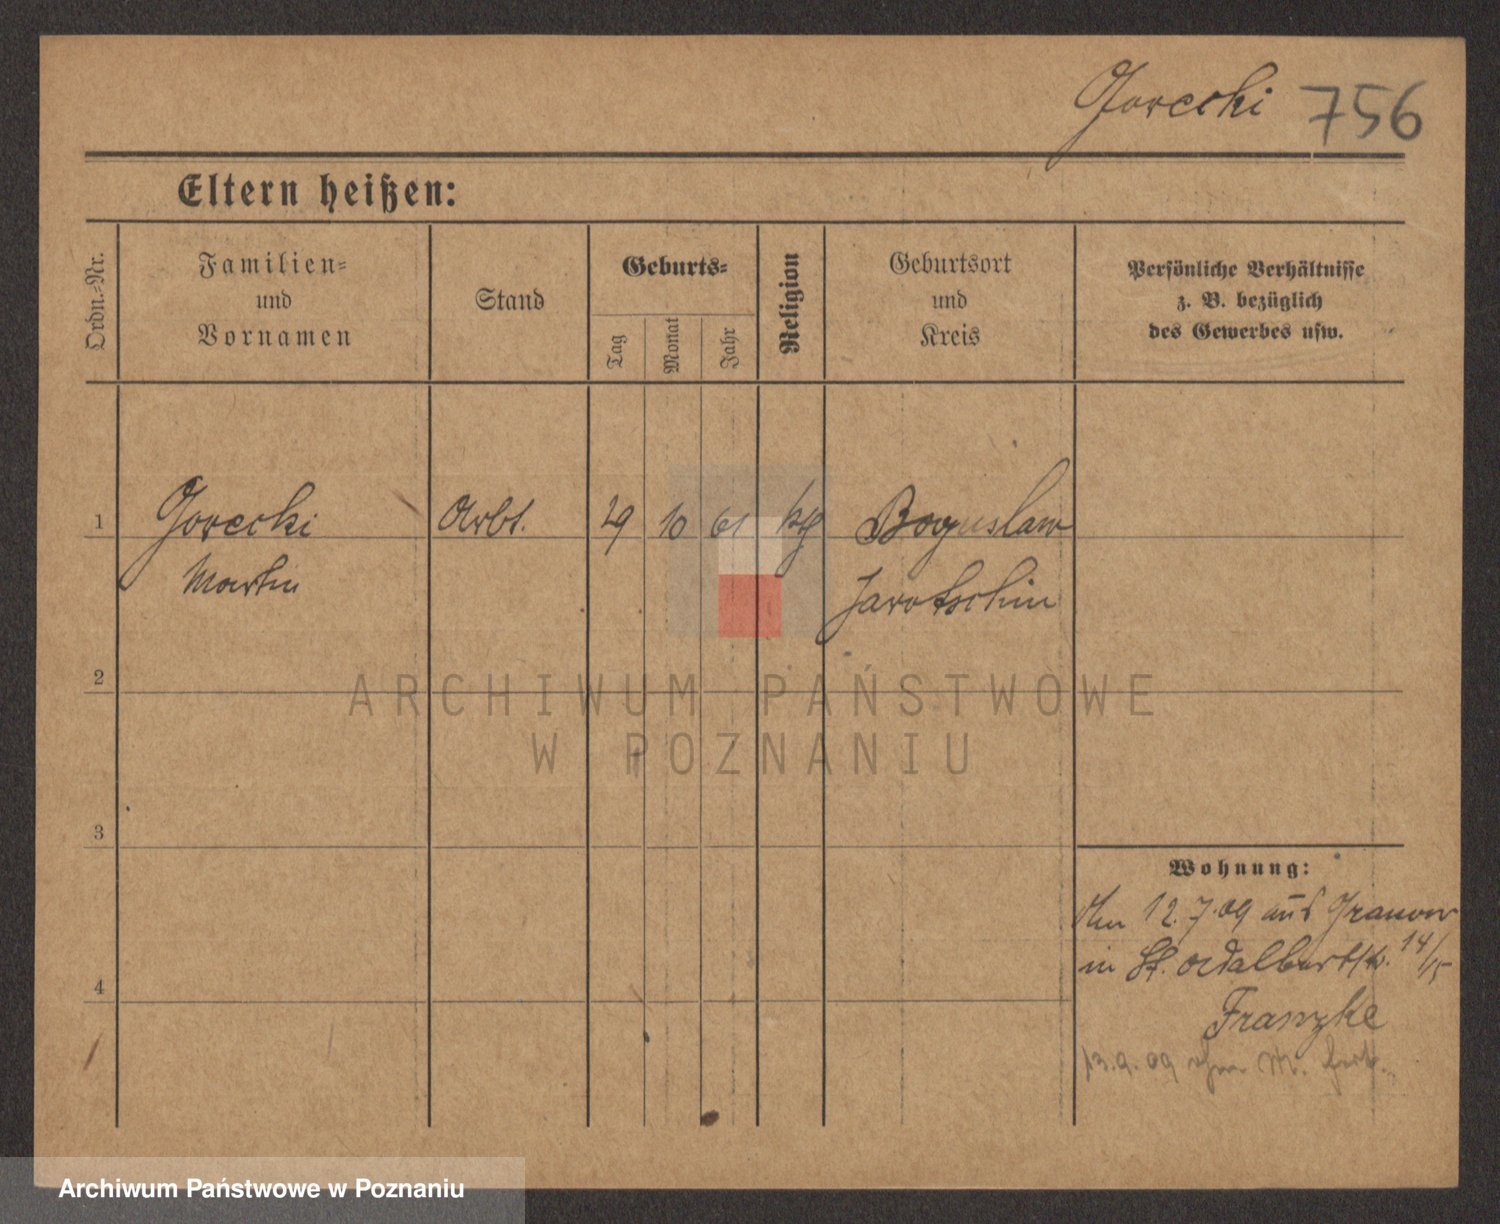 Gorecki 756
Eltern heißen:
Ordn.-Nr.
Familien-
und
Vornamen
Stand
Geburts-
Tag
Monat
Jahr
Religion
Geburtsort
und
Kreis
Persönliche Verhältnisse
z. B. bezüglich
des Gewerbes usw.
1 Gorecki Arbt. 29 10 61 kth Boguslaw
Martin Jarotschin
2
ARCHIWUM PAŃSTWOWE
W POZNANIU
3
Wohnung:
12.7.09 aus
in St. Adalbertstr. 14/15
Franzke
4
13.9.09 ohne
Archiwum Państwowe w Poznaniu